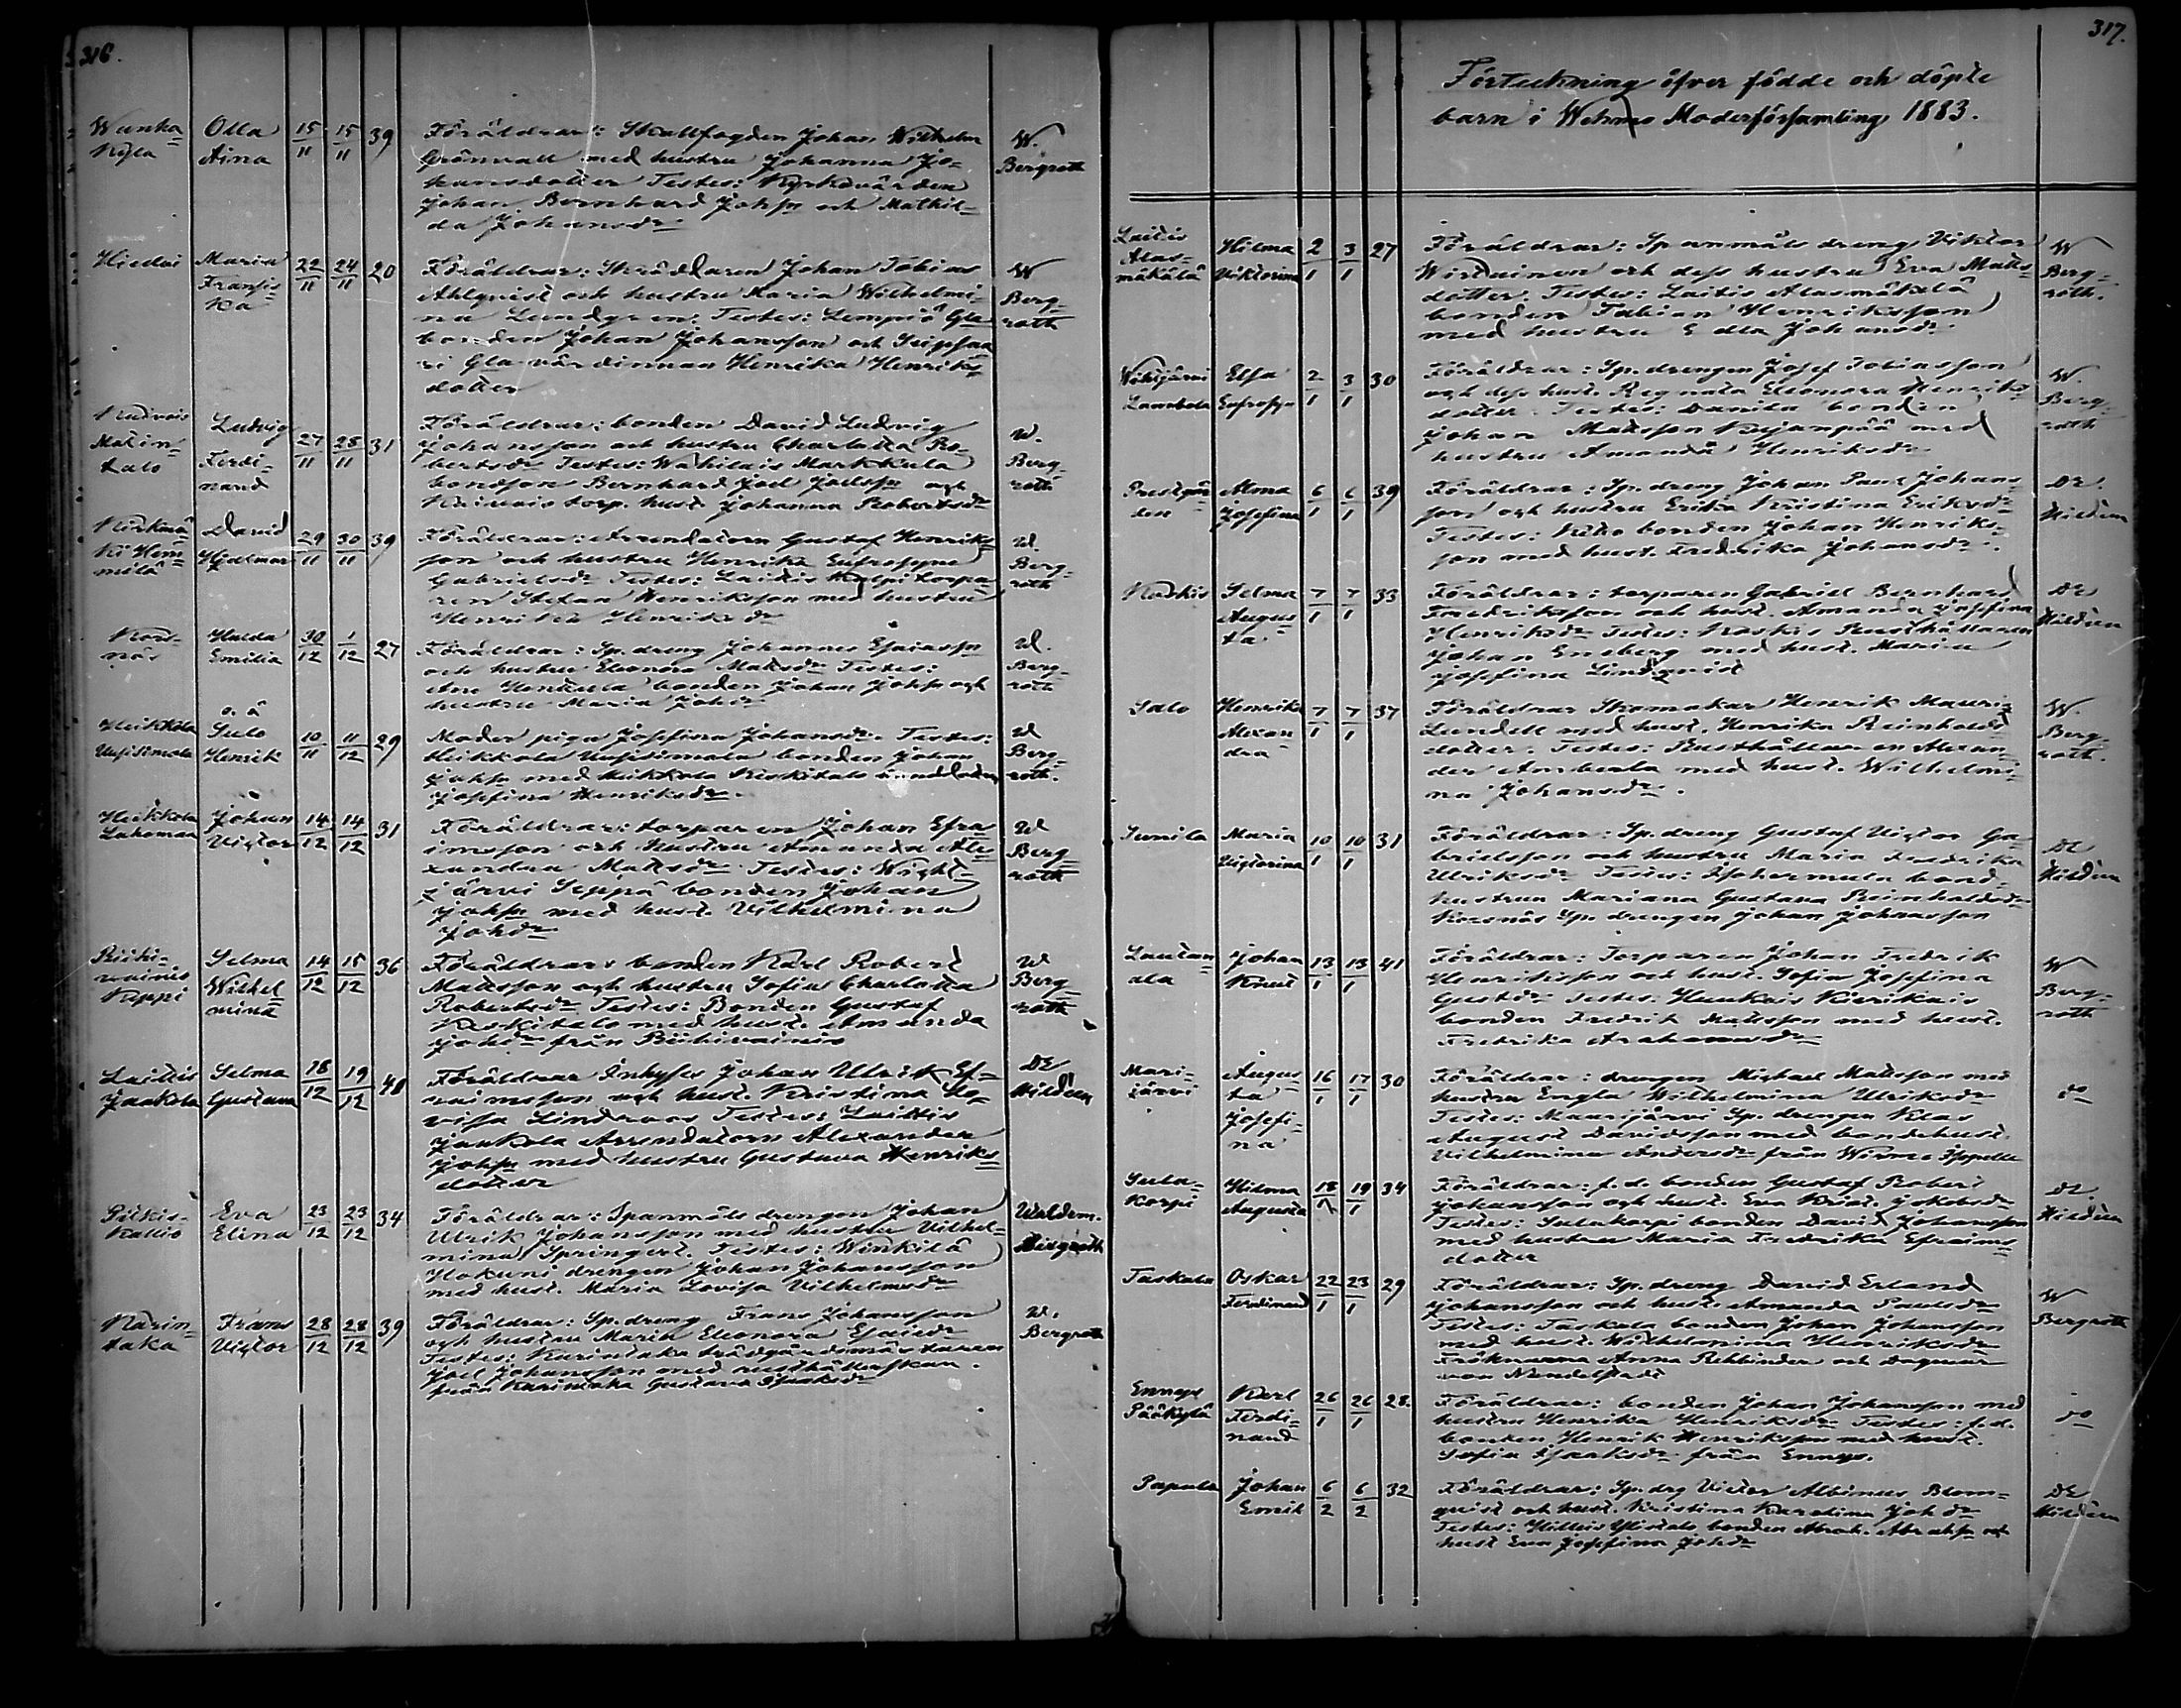 316.
Wanha=
Kyla
Olla
Aina
15/11 15/11 39
Föräldrar: Skallfogden Johan Wilhelm
Grönvall med hustru Johanna Jo-
hansdotter Testes: Kyrkovärden
Johan Bernhard Johsn och Mathil-
da Johansdr
W.
Bergroth
Hiedoi
Maria
Fransis-
ka
22/11 24/11 20
Föräldrar: Skräddaren Johan Tobias
Ahlqvist och hustru Maria Wilhelmi-
na Lundgren. Testes: Lempiö Gla
bonden Johan Johansson och
Gla värdinnan Henrika Henriks-
dotter
W
Berg-
roth
Matin-
talo
Ludvig
Ferdi-
nand
27/11 28/11 31
Föräldrar: bonden David Ludvig
Johansson och hustru Charlotta Ro-
bertsdr Testes: Wahilais Markkula
bondson Bernhard Joel Joelsn och
torp. hust Johanna Robertsdr
W.
Berg-
roth
David
Hjalmar
29/11 30/11 39
Föräldrar: Arrendatorn Gustaf Henriks-
son och hustru Henrika Eufrosyne
Gabrielsdr Testes: Laitis torpa-
ren Stefan Henriksson med hustru
Henrika Henriksdr
W.
Berg-
roth
Kors-
näs
Hulda
Emilia
30/12 1/12 27
Föräldrar: Sp. dreng Johannes Esaiassn
och hustru Eleonora Matsdr Testes:
bonden Johan Johsn och
hustru Maria Johdr
W.
Berg-
roth
Heikkola
Uusitimola
o. ä
Sulo
Henrik
10/11 11/12 29
Moder piga Josefina Johansdr. Testes:
Heikkola Uusitimola bonden Johan
Johsn med Heikkola Keskitalo
Josefina Henriksdr.
W
Berg-
roth.
Heikkola
Lahomaa
Johan
Victor
14/12 14/12 31
Föräldrar: torparen Johan Efra-
imsson och Hustru Amanda Ale-
xandra Mattsdr Testes: Wiht-
järvi Seppä bonden Johan
Johsn med hust. Vilhelmina
Johdr
W
Berg-
roth
Riihi-
vainio
Seppi
Selma
Wilhel-
mina
14/12 15/12 36
Föräldrar bonden Karl Robert
Mattsson och hustru Sofia Charlotta
Robertsdr Testes: Bonden Gustaf
Keskitalo med hust. Amanda
Johdr från Riihivainio
W
Berg-
roth
Laitis
Jaakola
Selma
Gustava
18/12 19/12 41
Föräldrar Inhyses Johan Ulrik Ef-
raimsson och hust. Kristina Lo-
visa Lindroos Testes: Laitis
Jaakola Arrendatorn Alexander
Johsn med hustru Gustava Henriks-
dotter
DE
Hildén
Pitkis-
kallio
Eva
Elina
23/12 23/12 34
Föräldrar: Spanmåls drengen Johan
Ulrik Johansson med hustru Vilhel-
mina Springert. Testes: Winkilä
Hokuni drengen Johan Johansson
med hust. Maria Lovisa Vilhelmsdr
Waldem.
Bergroth
Karin-
taka
Frans
Victor
28/12 28/12 39
Föräldrar: Sp. dreng Frans Johansson
och hustru Maria Eleonora Esaiedr
Testes: Karintaka trädgårdsmästaren
Joel Johansson med rusthållerskan
från Karintaka Gustava Isaksdr
W.
Bergroth
317.
Förteckning öfver födde och döpte
barn i Wehmo Moderförsamling 1883.
Laitis
Alas-
mäkälä
Hilma
Viktorina
2/1 3/1 27
Föräldrar: Spanmåls dreng Viktor
Wirtainen och dess hustru Eva Matts-
dotter. Testes: Laitis Alasmäkälä
bonden Fabian Henriksson
med hustru Edla Johansdr.
W
Berg-
roth.
Wihtjärvi
Lambola
Elsa
Eufrosyn
2/1 3/1 30
Föräldrar: Sp. drengen Josef Tobiasson
och dess hust. Regnata Eleonora Henriks-
dotter. Testes: Danila bonden
Johan Matsson Kujanpää med
hustru Amanda Henriksdr
W.
Berg-
roth
Prestgår-
den
Alma
Josefina
6/1 6/1 39
Föräldrar: Sp. dreng Johan Paul Johans-
son och hustru Erika Kristina Eriksdr
Testes: bonden Johan Henriks-
son med hust. Fredrika Johansdr.
DE.
Hildén
Koskis
Selma
Augus-
ta
7/1 7/1 33
Föräldrar: torparen Gabriel Bernhard
Fredriksson och hust. Amanda Josefina
Henriksdr Testes: Koskis Rusthållaren
Johan Eneberg med hust. Maria
Josefina Lindqvist
DE
Hildén
Salo
Henrika
Alexan-
dra
7/1 7/1 37
Föräldrar Skomakar Henrik Mauri
Lundell med hust. Henrika Reinholds
dotter. Testes: Rusthållaren Alexan-
der med hust. Wilhelmi-
na Johansdr.
W.
Berg-
roth.
Sunila
Maria
Victorina
10/1 10/1 31
Föräldrar: Sp. dreng Gustaf Victor Ga-
brielsson och hustru Maria Fredrika
Ulriksdr Testes: bond-
hustrun Mariana Gustava Reinholdsdr
Korsnäs Sp. drengen Johan Johansson
DE
Hildén
Lautan-
ala
Johan
Knut
13/1 13/1 41
Föräldrar: Torparen Johan Fredrik
Henriksson och hust. Sofia Josefina
Gustdr Testes: Kierikais
bonden Fredrik Mattsson med hust.
Fredrika Abrahamsdr
W
Berg-
roth
Mari-
järvi
Augus-
ta
Josefi-
na
16/1 17/1 30
Föräldrar: drengen Michael Mattsson med
hustru Engla Wilhelmina Ulriksdr
Testes: Maarijärvi Sp. drengen Klas
August Davidsson med bondehust.
Vilhelmina Andersdr från Wirmo
do
Sula-
korpi
Hilma
Augusta
18/1 19/1 34
Föräldrar: f.d. bonden Gustaf Robert
Johansson och hust. Eva Krist. Jakobsdr
Testes: Sulakorpi bonden David Johansson
med hustru Maria Fredrika Efraims-
dotter
DE.
Hildén
Taskula
Oskar
Ferdinand
22/1 23/1 29
Föräldrar: Sp. dreng David Erland
Johansson och hust. Amanda Paulsdr
Testes: Taskula bonden Johan Johansson
med hust. Wilhelmina Henriksdr
Fröknarna Anna Rehbinder och Dagmar
von Nandelstadt
W
Bergroth
Ennyys
Pääkylä
Karl
Ferdi-
nand
26/1 26/1 28.
Föräldrar: bonden Johan Johansson med
hustru Henrika Henriksdr Testes: f.d.
bonden Henrik Henriksson med hust.
Sofia Isaksdr från Ennys.
do
Papula
Johan
Emil
6/2 6/2 32
Föräldrar: Sp. drg Victor Albinus Blom-
qvist och hust. Kristina Karolina Johdr
Testes: Ylistalo bonden Abrah. Abrahsn och
hust Eva Josefina Johdr
DE
Hildén